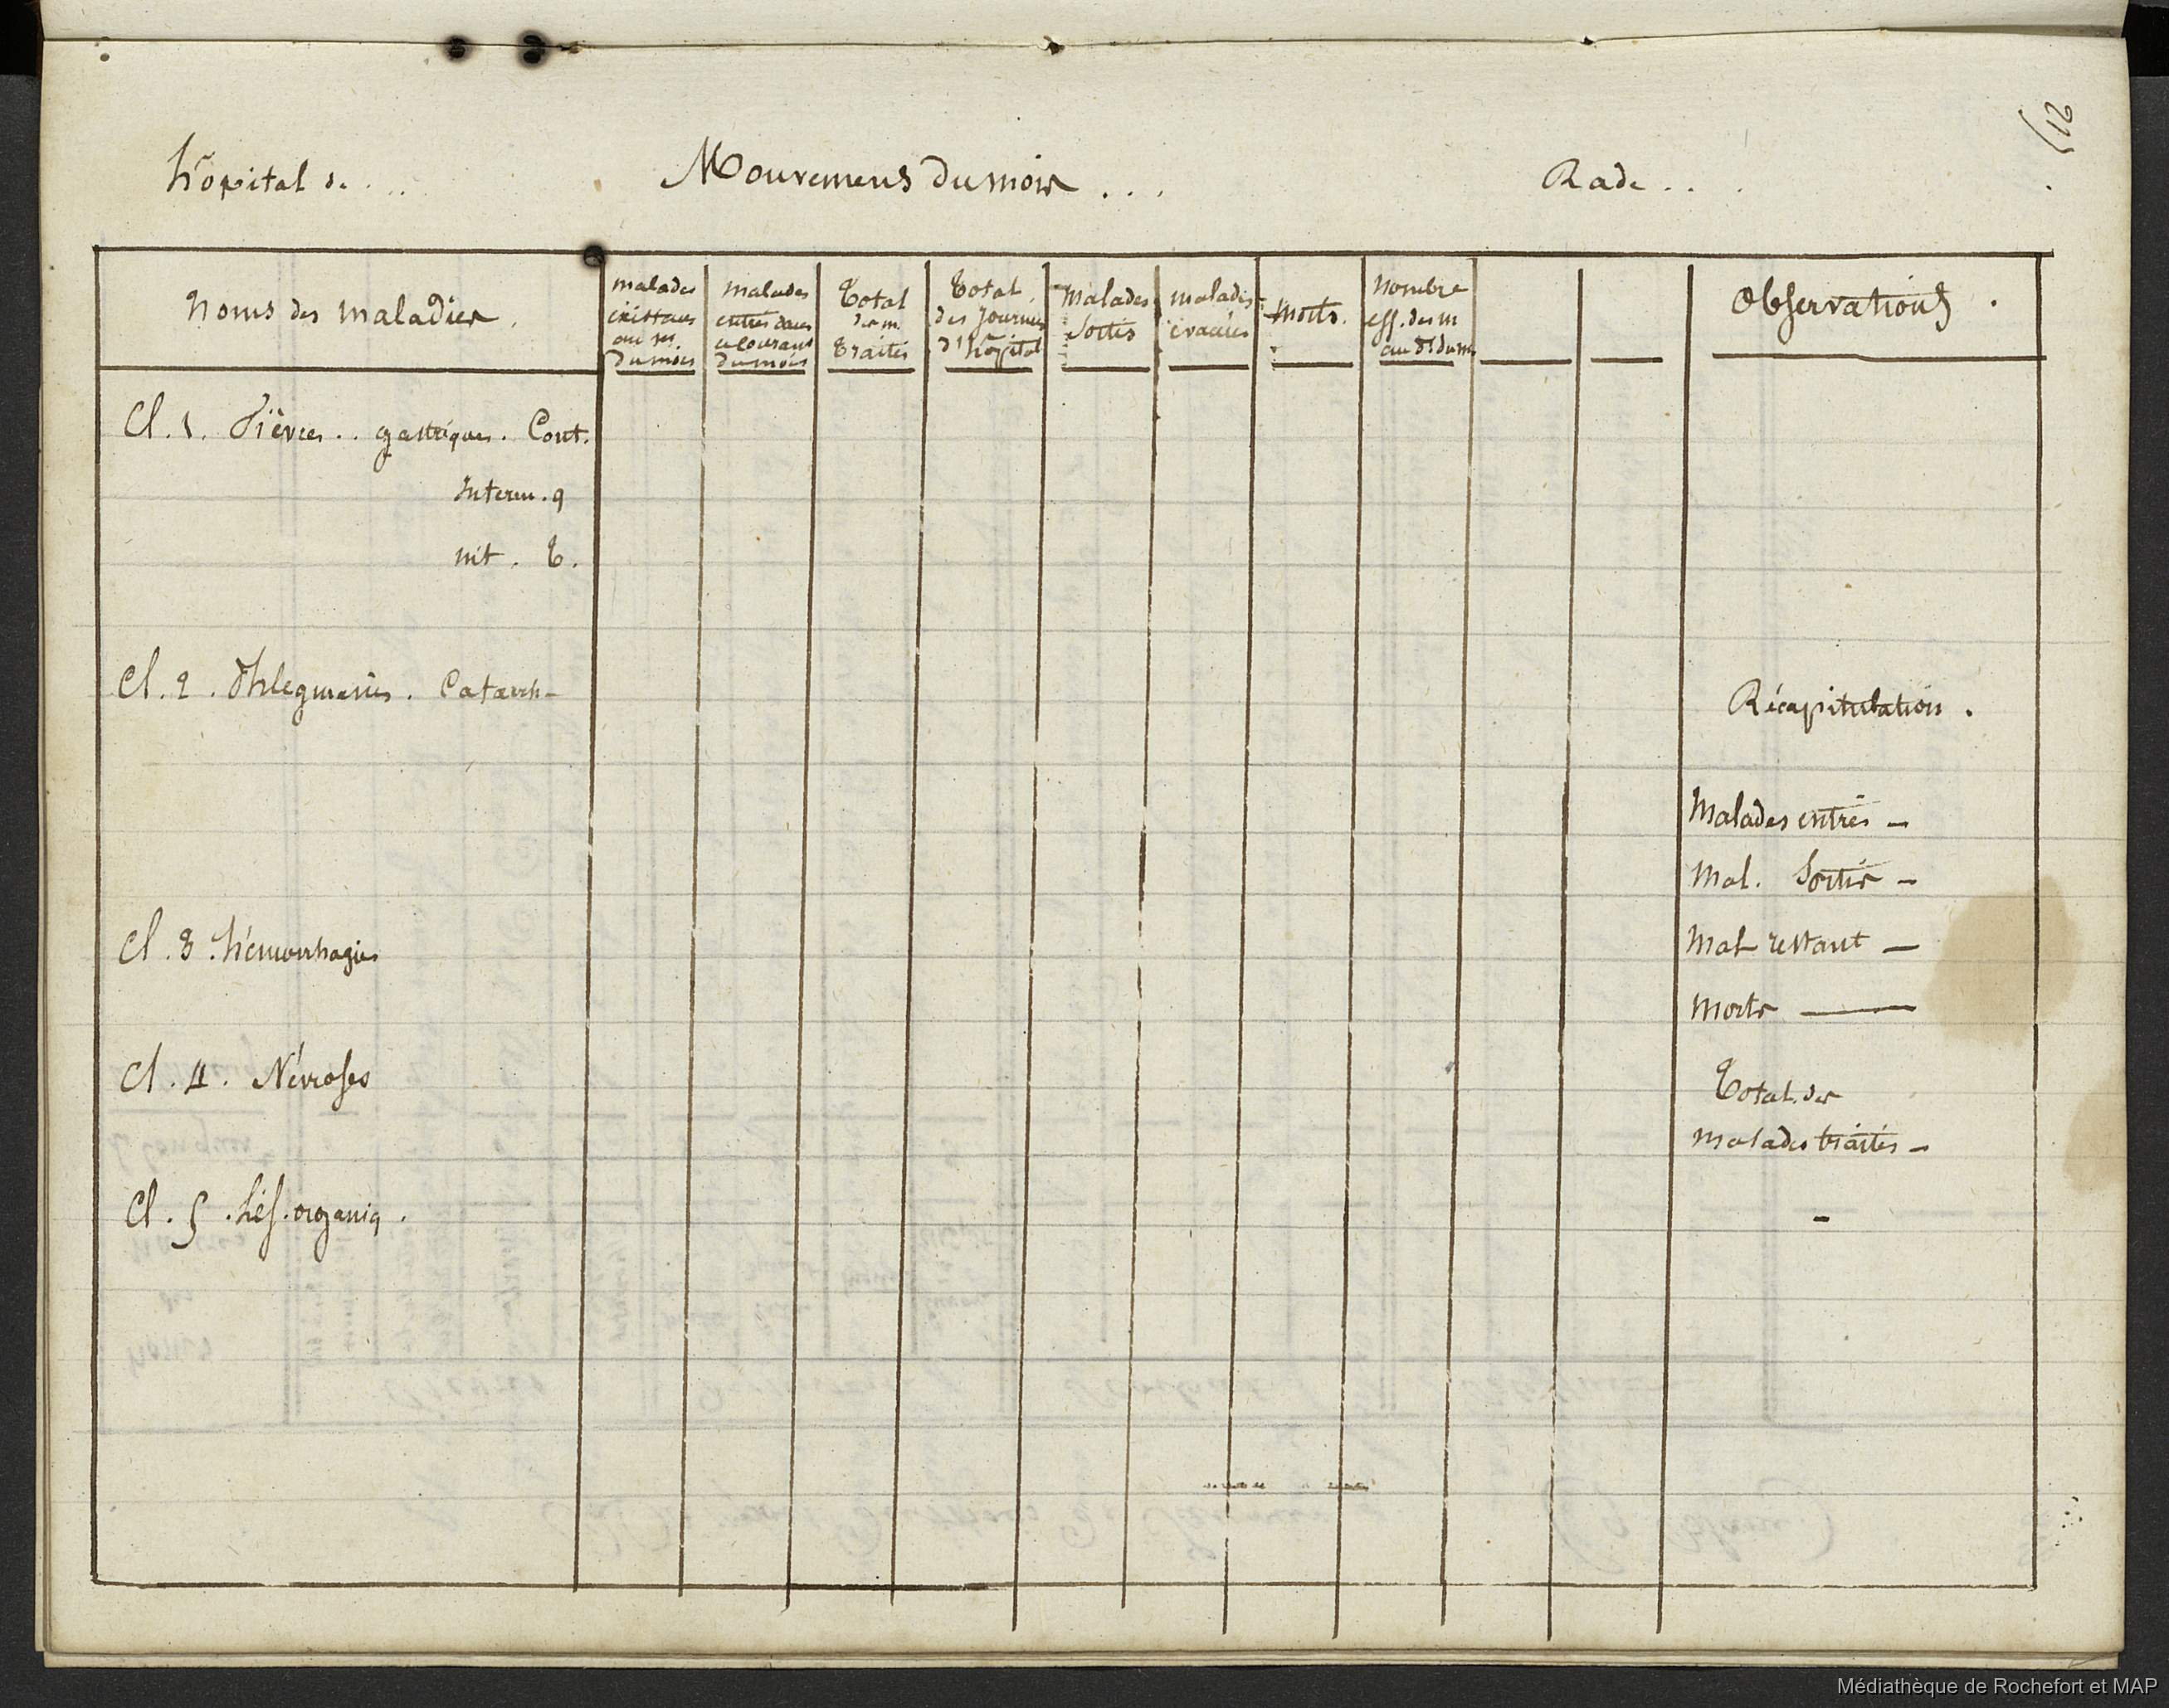 12
hôpital de ....
Mouvemens du mois . . .
Rade . . .
Noms des maladies.
malades
existans
au 1er
du mois
malades
entrés dans
le courant
du mois
Total
des m
traités
Total
des journées
d'hôpital
Malades
Sortis
malades
évacués
morts.
Nombre
eff. des m
au 31 du m
Observations.
Cl. 1. Fièvres .. gastriques. Cont.
Interm. q
nit. t.
Cl. 2. Phlegmasies. Catarrh-
Récapitulation.
Malades entrés -
Mal. Sortis -
Cl. 3. hémorrhagies
Mal restant -
Morts -
Cl. 4. Névroses
Total des
malades traités -
Cl. 5. Lés. organiq.
-
Médiathèque de Rochefort et MAP